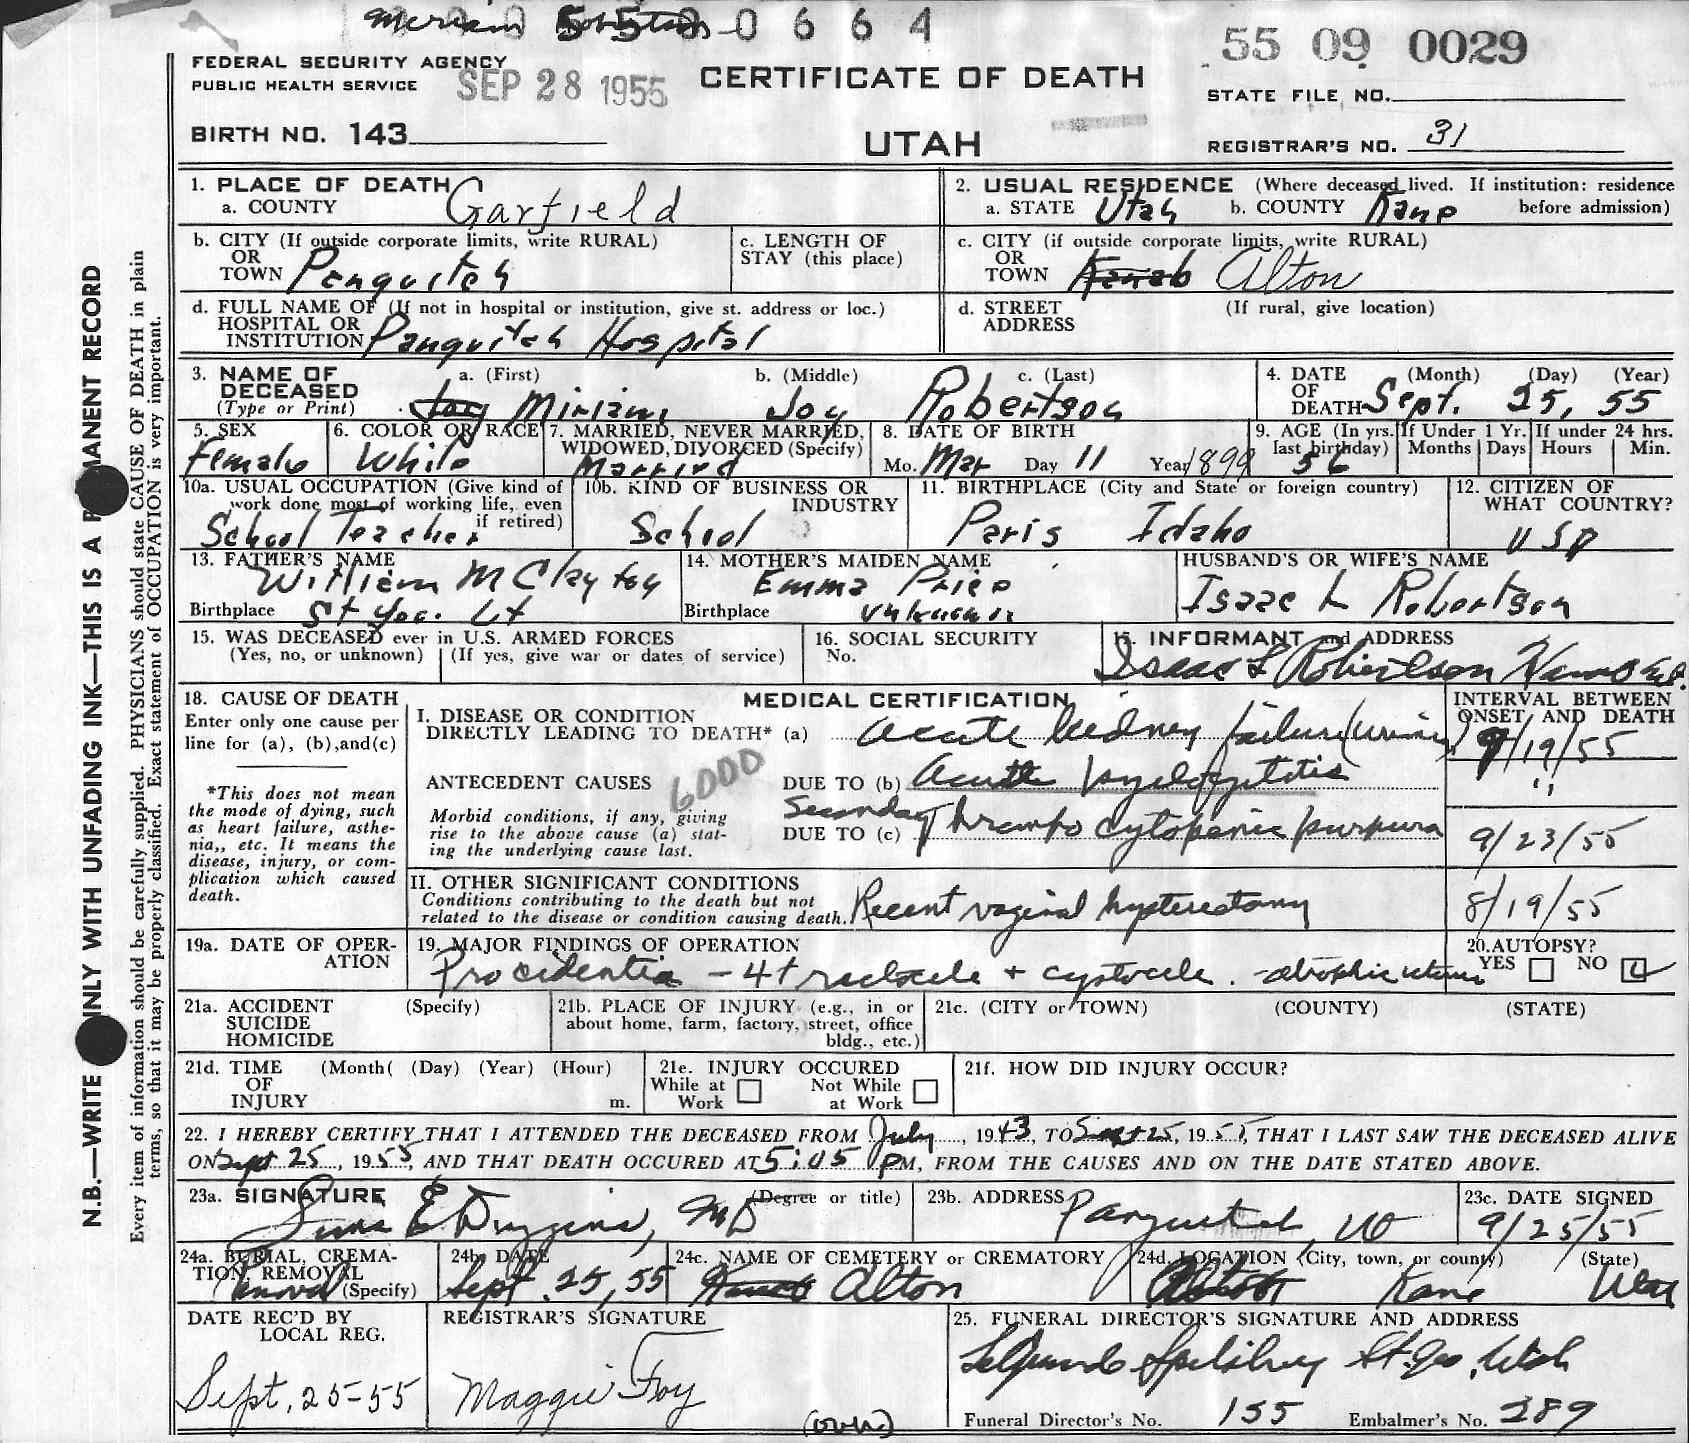 Meriam Robertson
5 5 0 6 6 4
55 09 0029
FEDERAL SECURITY AGENCY
PUBLIC HEALTH SERVICE
SEP 28 1955
CERTIFICATE OF DEATH
STATE FILE NO.
BIRTH NO. 143
UTAH
REGISTRAR'S NO. 31
1. PLACE OF DEATH
a. COUNTY Garfield
2. USUAL RESIDENCE (Where deceased lived. If institution: residence before admission)
a. STATE Utah b. COUNTY Kane
b. CITY (If outside corporate limits, write RURAL)
OR TOWN Panguitch
c. LENGTH OF STAY (this place)
c. CITY (if outside corporate limits, write RURAL)
OR TOWN Kanab Alton
d. FULL NAME OF (If not in hospital or institution, give st. address or loc.)
HOSPITAL OR INSTITUTION Panguitch Hospital
d. STREET ADDRESS (If rural, give location)
3. NAME OF DECEASED (Type or Print)
a. (First) b. (Middle) c. (Last)
Joy Miriam Joy Robertson
4. DATE OF DEATH (Month) (Day) (Year)
Sept. 25, 55
5. SEX
Female
6. COLOR OR RACE
White
7. MARRIED, NEVER MARRIED, WIDOWED, DIVORCED (Specify)
Married
8. DATE OF BIRTH
Mo. Mar Day 11 Year 1899
9. AGE (In yrs. last birthday) 56
If Under 1 Yr. Months Days
If under 24 hrs. Hours Min.
10a. USUAL OCCUPATION (Give kind of work done most of working life, even if retired)
School Teacher
10b. KIND OF BUSINESS OR INDUSTRY
School
11. BIRTHPLACE (City and State or foreign country)
Paris Idaho
12. CITIZEN OF WHAT COUNTRY?
USA
13. FATHER'S NAME
William M Clayton
Birthplace St Geo. Ut
14. MOTHER'S MAIDEN NAME
Emma Price
Birthplace Unknown
HUSBAND'S OR WIFE'S NAME
Isaac L Robertson
15. WAS DECEASED ever in U.S. ARMED FORCES
(Yes, no, or unknown) (If yes, give war or dates of service)
16. SOCIAL SECURITY
No.
17. INFORMANT and ADDRESS
Isaac L Robertson Kanab Ut.
18. CAUSE OF DEATH
Enter only one cause per line for (a), (b), and (c)
*This does not mean the mode of dying, such as heart failure, asthenia,, etc. It means the disease, injury, or complication which caused death.
MEDICAL CERTIFICATION
INTERVAL BETWEEN ONSET AND DEATH
I. DISEASE OR CONDITION DIRECTLY LEADING TO DEATH* (a) Acute kidney failure (uremia) 9/19/55
ANTECEDENT CAUSES
6000
DUE TO (b) Acute pyelocystitis "
Morbid conditions, if any, giving rise to the above cause (a) stating the underlying cause last.
DUE TO (c) Secondary thrombocytopenic purpura 9/23/55
II. OTHER SIGNIFICANT CONDITIONS
Conditions contributing to the death but not related to the disease or condition causing death. Recent vaginal hysterectomy 8/19/55
19a. DATE OF OPERATION
19. MAJOR FINDINGS OF OPERATION
Procidentia - 4+ rectocele + cystocele. - atrophic uterus
20. AUTOPSY?
YES NO
21a. ACCIDENT SUICIDE HOMICIDE (Specify)
21b. PLACE OF INJURY (e.g., in or about home, farm, factory, street, office bldg., etc.)
21c. (CITY or TOWN) (COUNTY) (STATE)
21d. TIME OF INJURY (Month( (Day) (Year) (Hour) m.
21e. INJURY OCCURED
While at Work Not While at Work
21f. HOW DID INJURY OCCUR?
22. I HEREBY CERTIFY THAT I ATTENDED THE DECEASED FROM July, 1943, TO Sept 25, 1955, THAT I LAST SAW THE DECEASED ALIVE
ON Sept 25, 1955, AND THAT DEATH OCCURED AT 5:05 PM, FROM THE CAUSES AND ON THE DATE STATED ABOVE.
23a. SIGNATURE (Degree or title)
Sims E Duggins, MD
23b. ADDRESS
Panguitch, Ut
23c. DATE SIGNED
9/25/55
24a. BURIAL, CREMATION, REMOVAL (Specify)
24b. DATE
Sept. 25, 55
24c. NAME OF CEMETERY or CREMATORY
Kanab Alton
24d. LOCATION (City, town, or county) (State)
Alton Kane Utah
DATE REC'D BY LOCAL REG.
Sept, 25-55
REGISTRAR'S SIGNATURE
Maggie Foy
(over)
25. FUNERAL DIRECTOR'S SIGNATURE AND ADDRESS
Spilsbury St. Geo, Utah
Funeral Director's No. 155 Embalmer's No. 289
N.B.—WRITE ONLY WITH UNFADING INK—THIS IS A PERMANENT RECORD
Every item of information should be carefully supplied. PHYSICIANS should state CAUSE OF DEATH in plain
terms, so that it may be properly classified. Exact statement of OCCUPATION is very important.